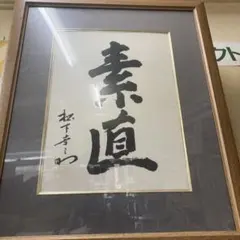 素直
松下幸之助
クト